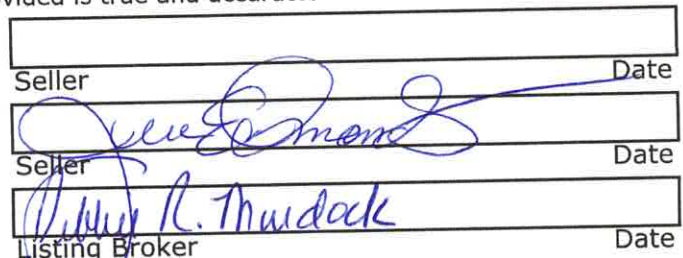 vided is true and accurate.
Seller Date
Seller Date
R. Murdock
Listing Broker Date